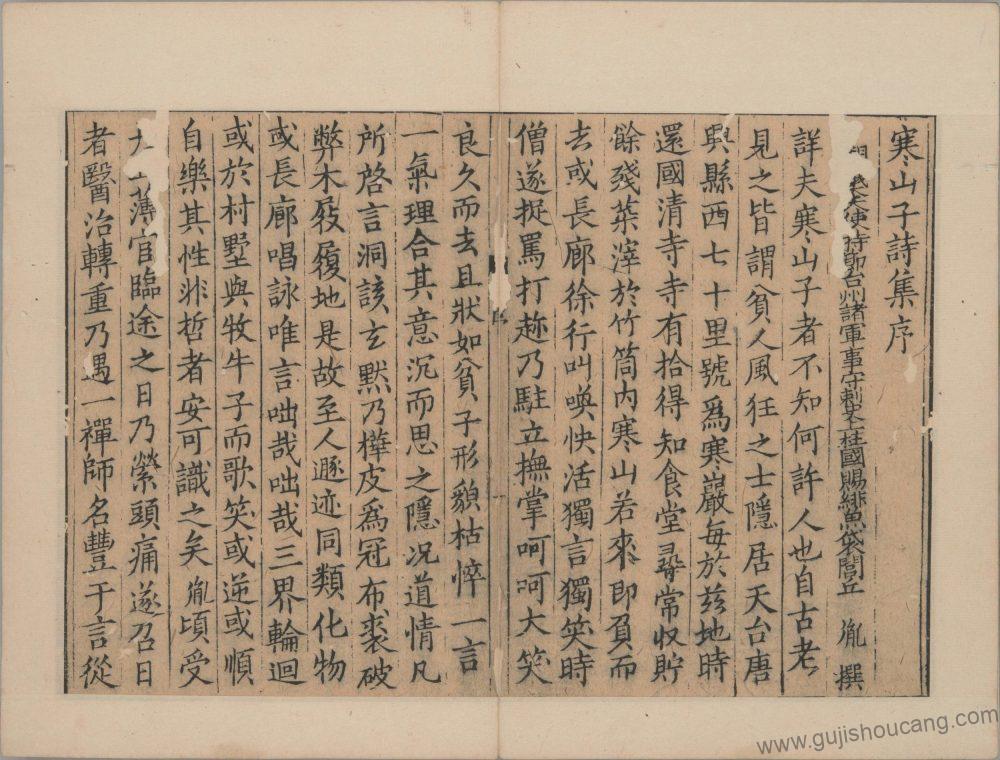 寒山子詩集序
使持節台州諸軍事守刺史上柱國賜緋魚袋閭丘 胤 撰
詳夫寒山子者不知何許人也自古老
見之皆謂貧人風狂之士隱居天台唐
興縣西七十里號爲寒巖每於兹地時
還國清寺寺有拾得知食堂尋常收貯
餘殘菜滓於竹筒内寒山若來即負而
去或長廊徐行叫喚快活獨言獨笑時
僧遂捉罵打趂乃駐立撫掌呵呵大笑
良久而去且狀如貧子形貌枯悴一言
一氣理合其意沉而思之隱况道情凡
所啓言洞該玄默乃樺皮爲冠布裘破
弊木屐履地是故至人遯迹同類化物
或長廊唱詠唯言咄哉咄哉三界輪迴
或於村墅與牧牛子而歌笑或逆或順
自樂其性非哲者安可識之矣胤頃受
薄官臨途之日乃縈頭痛遂召日
者醫治轉重乃遇一禪師名豐干言從
www.gujishoucang.com